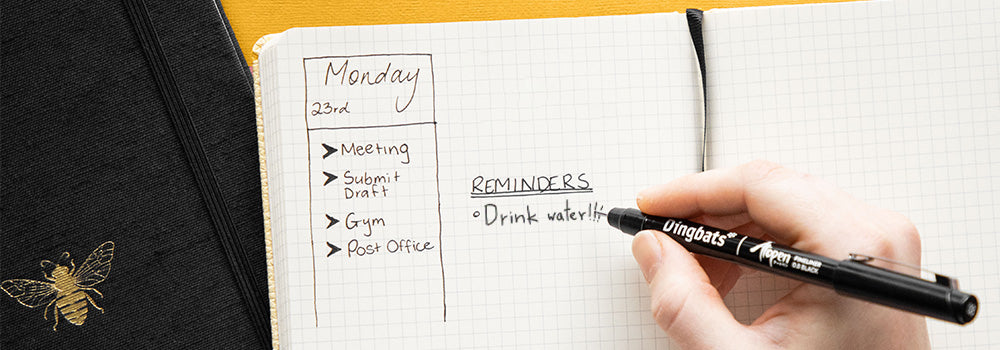 Monday
23rd
Meeting
Submit
Draft
Gym
Post Office
REMINDERS
Drink water!!!
Dingbats
FINELINER
0.8 BLACK